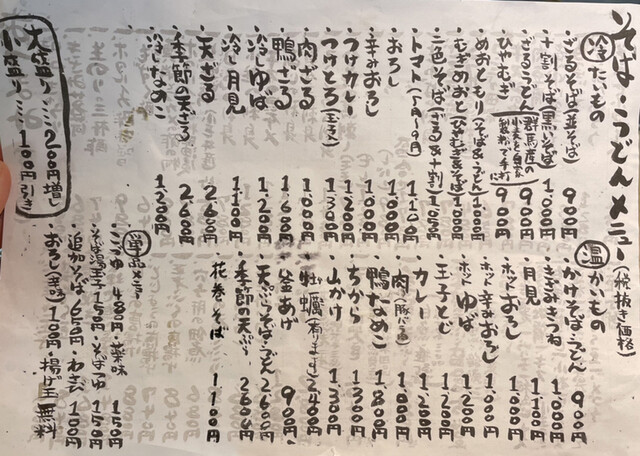 そば・うどんメニュー (税抜き価格)
冷たいもの
・ざるそば(並そば) 900円
・十割そば(黒いそば) 1,000円
・ざるうどん(群馬産の小麦を自家製粉で手打) 900円
・ひやむぎ 900円
・めおともり(そば&うどん) 1,000円
・むぎめおと(ひやむぎ&そば) 1,000円
・二色そば(ざる&十割) 1,050円
・トマト(5月~9月) 1,100円
・おろし 1,000円
・辛みおろし 1,000円
・つけカレー 1,200円
・つけとろ(玉子) 1,300円
・肉ざる 1,000円
・鴨ざる 1,600円
・冷しゆば 1,200円
・冷し月見 1,100円
・天ざる 2,600円
・季節の天ざる 2,600円
・冷しなめこ 1,200円
大盛り・・・200円増し
小盛り・・・100円引き
温かいもの
・かけそば・うどん 900円
・きざみきつね 1,000円
・月見 1,100円
・ホットおろし 1,000円
・ホット辛みおろし 1,000円
・ホットゆば 1,200円
・玉子とじ 1,200円
・カレー 1,200円
・肉(豚バラ) 1,000円
・鴨なめこ 1,800円
・ちから 1,300円
・山かけ 1,300円
・牡蠣(有ります) 2,400円
・釜あげ 900円
・天ぷらそば・うどん 2,600円
・季節の天ぷら 2,600円
花巻そば 1,100円
単品メニュー
・こつゆ 480円・薬味 150円
・そば湯玉子 150円・そばつゆ 150円
・追加そば 650円・わさび 100円
・おろし 100円・揚げ玉 無料